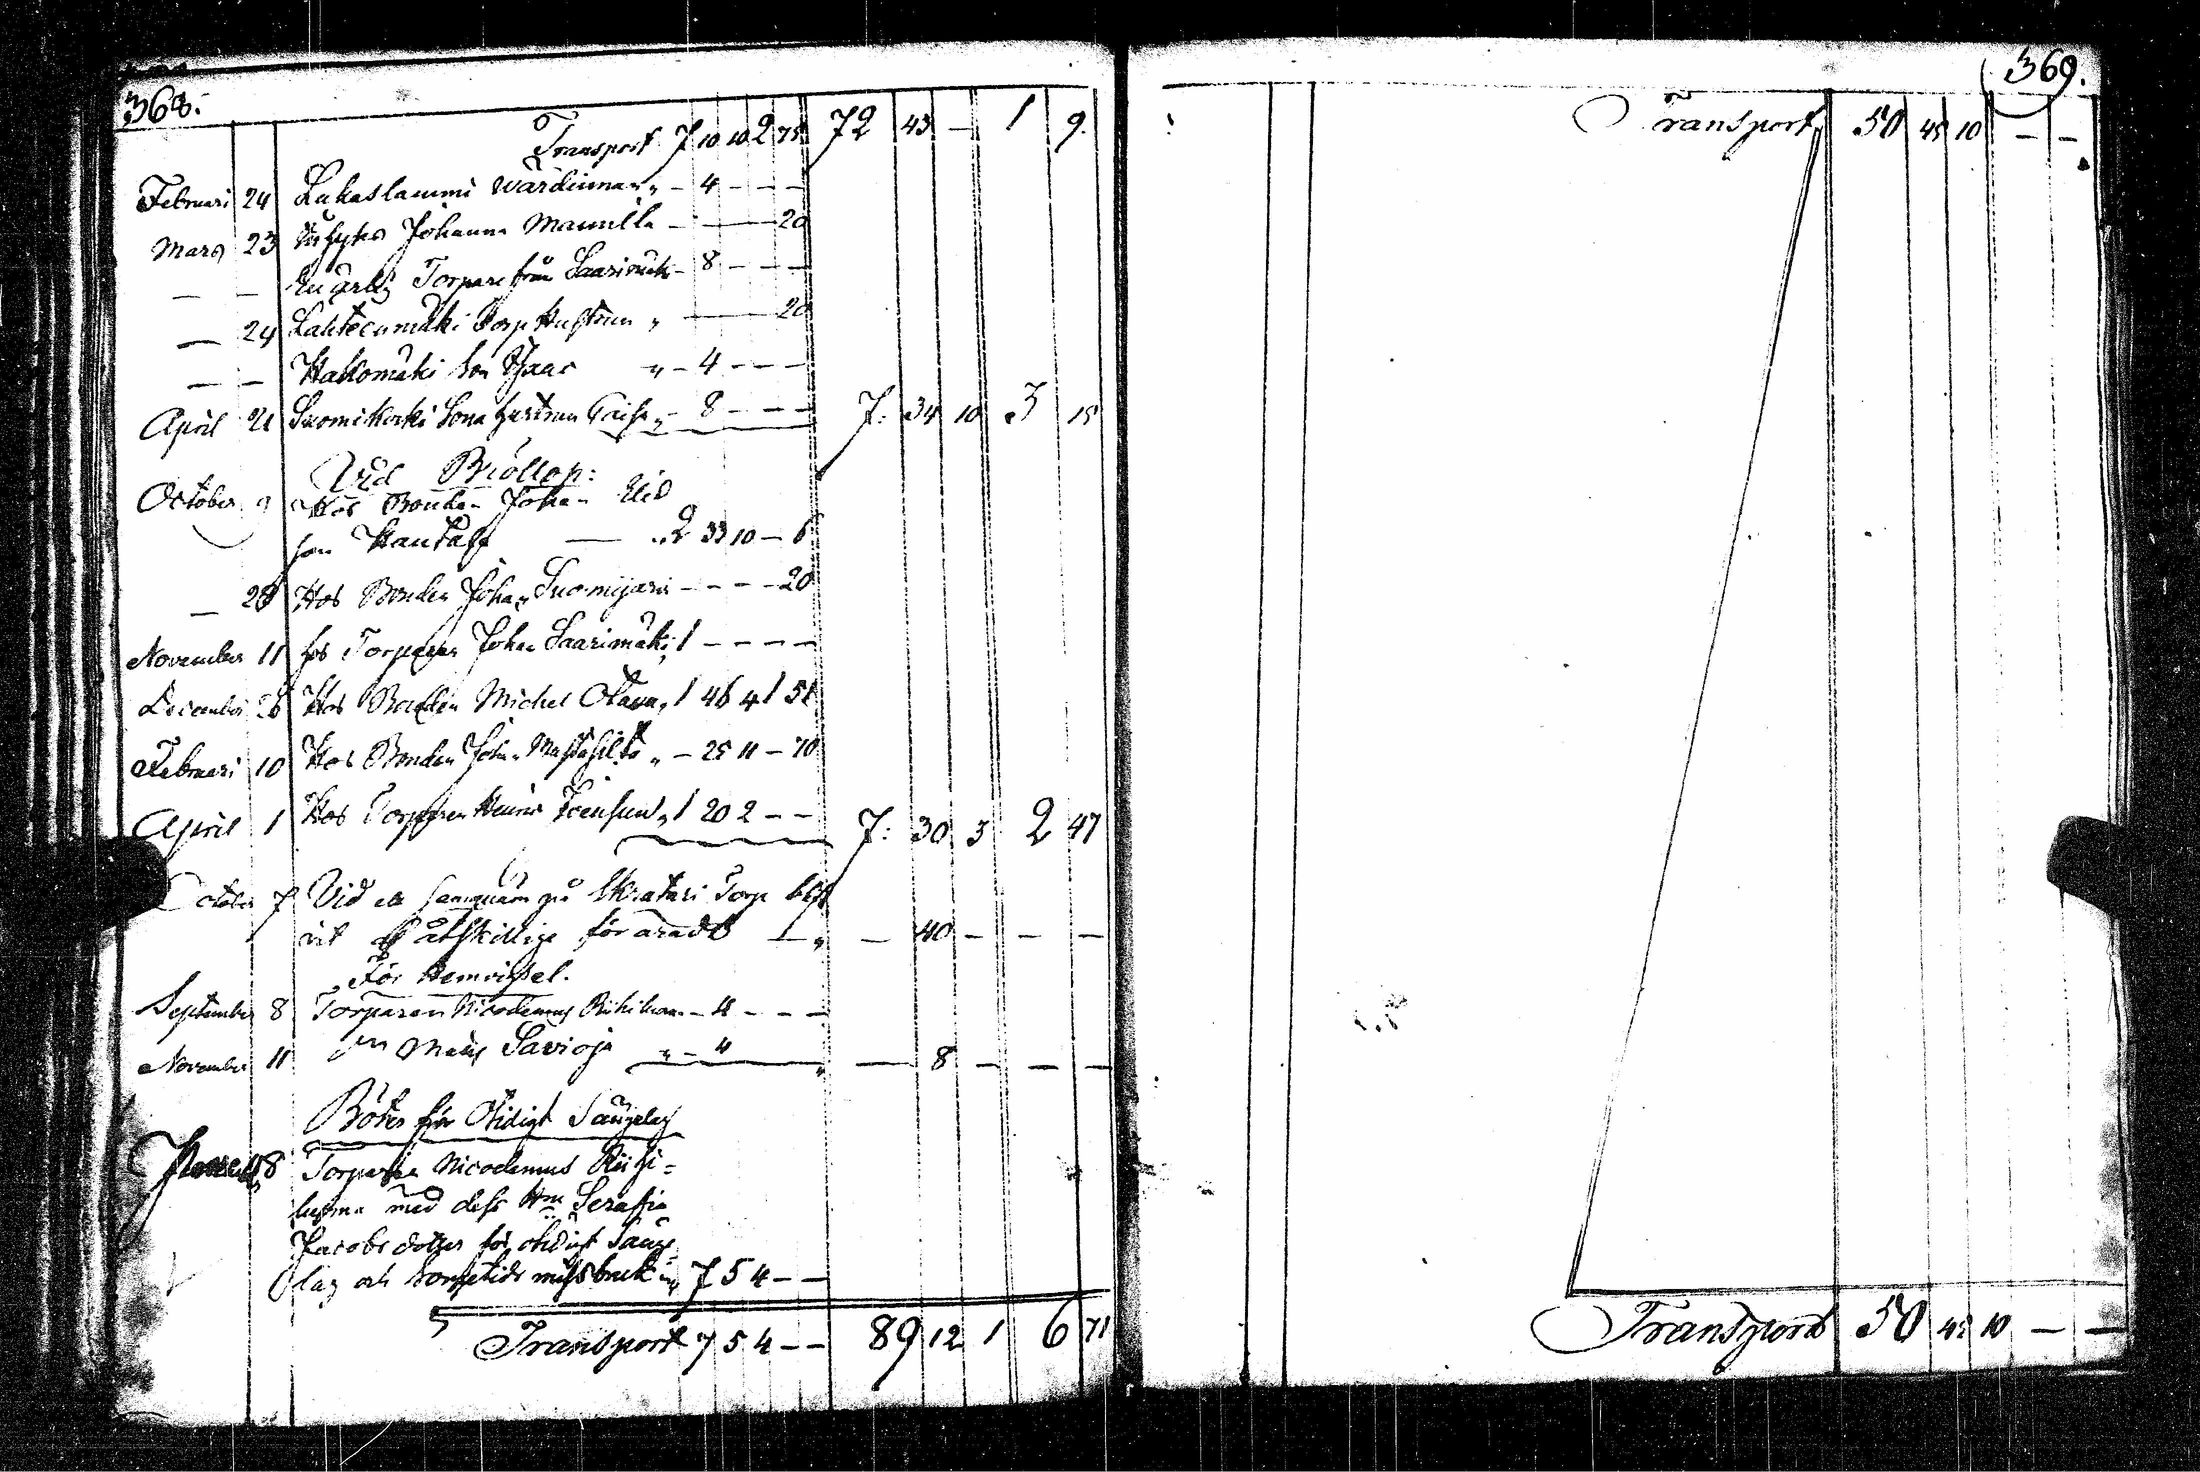 368.
Transport 7 10 10 2 75 72 43 — 1 9.
Februari 24 Lukaslammi wärdinnan „ — 4 — — —
Mars 23 Johanna Mamilla — — 20
— — Torpare från Saarimäki — 8 — — —
— 24 Torp Hustrun „ — 20
— — Hallomäki Son Isaac „ — 4 — — —
April 21 Suomikoski Sona hustrun Caisa „ — 8 — — — 7: 34 10 3 15
Vid Bröllop:
October 9 Hos Bonden Johan Elid
son Hautala — „ 2 33 10 — 6
— 28 Hos Bonden Johan Suomijarvi — — — — 20
November 11 hos Torparen Johan Saarimäki „ 1 — — — —
December 26 Hos Bonden Michel Otava „ 1 46 4 1 51
Februari 10 Hos Bonden Johan „ — 25 11 — 70
April 1 Hos Torparen Joensuu „ 1 20 2 — — 7: 30 3 2 47
October 7 Vid en samquäm på Torp blef
vit af åtskillige förärade — „ — 40 — — —
För Hemvissel.
September 8 Torparen Nicodemus — 4 — — —
November 11 Mats Savioja „ — 4 „ — 8 — — —
Böter för Otidigt Sängelag
8 Torparen Nicodemus Riihi=
luoma med dess Hu Serafia
Jacobsdotter för otidigt Sänge
lag och missbruk „ 7 5 4 — —
Transport 7 5 4 — — 89 12 1 6 71
369.
Transport 50 45 10 — —
Transport 50 45 10 — —